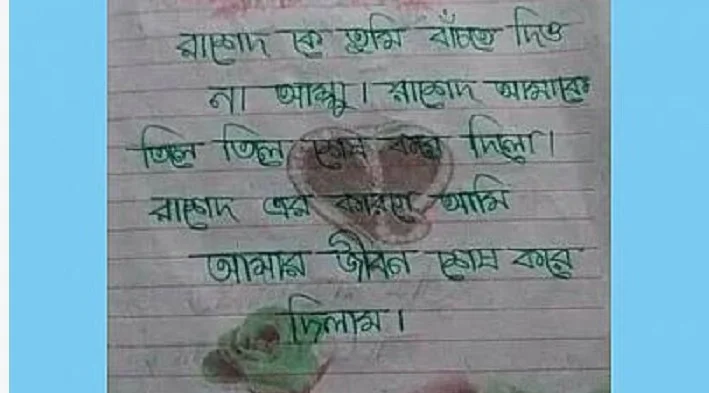 রাশেদ কে তুমি বাঁচতে দিও
না আম্মু। রাশেদ আমাকে
তিল তিল শেষ করে দিলো।
রাশেদ এর কারণে আমি
আমার জীবন শেষ করে
দিলাম।